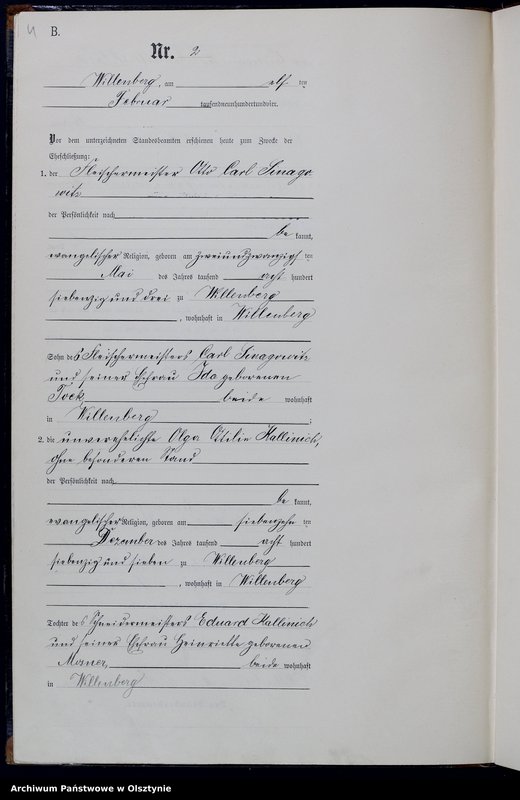 4
B.
Nr. 2
Willenberg, am elf ten
Februar tausendneunhundertundvier.
Vor dem unterzeichneten Standesbeamten erschienen heute zum Zwecke der
Eheschließung:
1. der Fleischermeister Otto Carl Sinago
witz
der Persönlichkeit nach
be kannt,
evangelischer Religion, geboren am zweiundzwanzigsten
Mai des Jahres tausend acht hundert
siebenzig und drei zu Willenberg
, wohnhaft in Willenberg
Sohn des Fleischermeisters Carl Sinagowitz
und seiner Ehefrau Ida geborenen
beide wohnhaft
in Willenberg ;
2. die unverehelichte Olga Ottilie Kallinich,
ohne besonderen Stand
der Persönlichkeit nach
be kannt,
evangelischer Religion, geboren am siebenzehn ten
Dezember des Jahres tausend acht hundert
siebenzig und sieben zu Willenberg
, wohnhaft in Willenberg
Tochter des Schneidermeisters Eduard Kallinich
und seiner Ehefrau Henriette geborenen
beide wohnhaft
in Willenberg
Archiwum Państwowe w Olsztynie